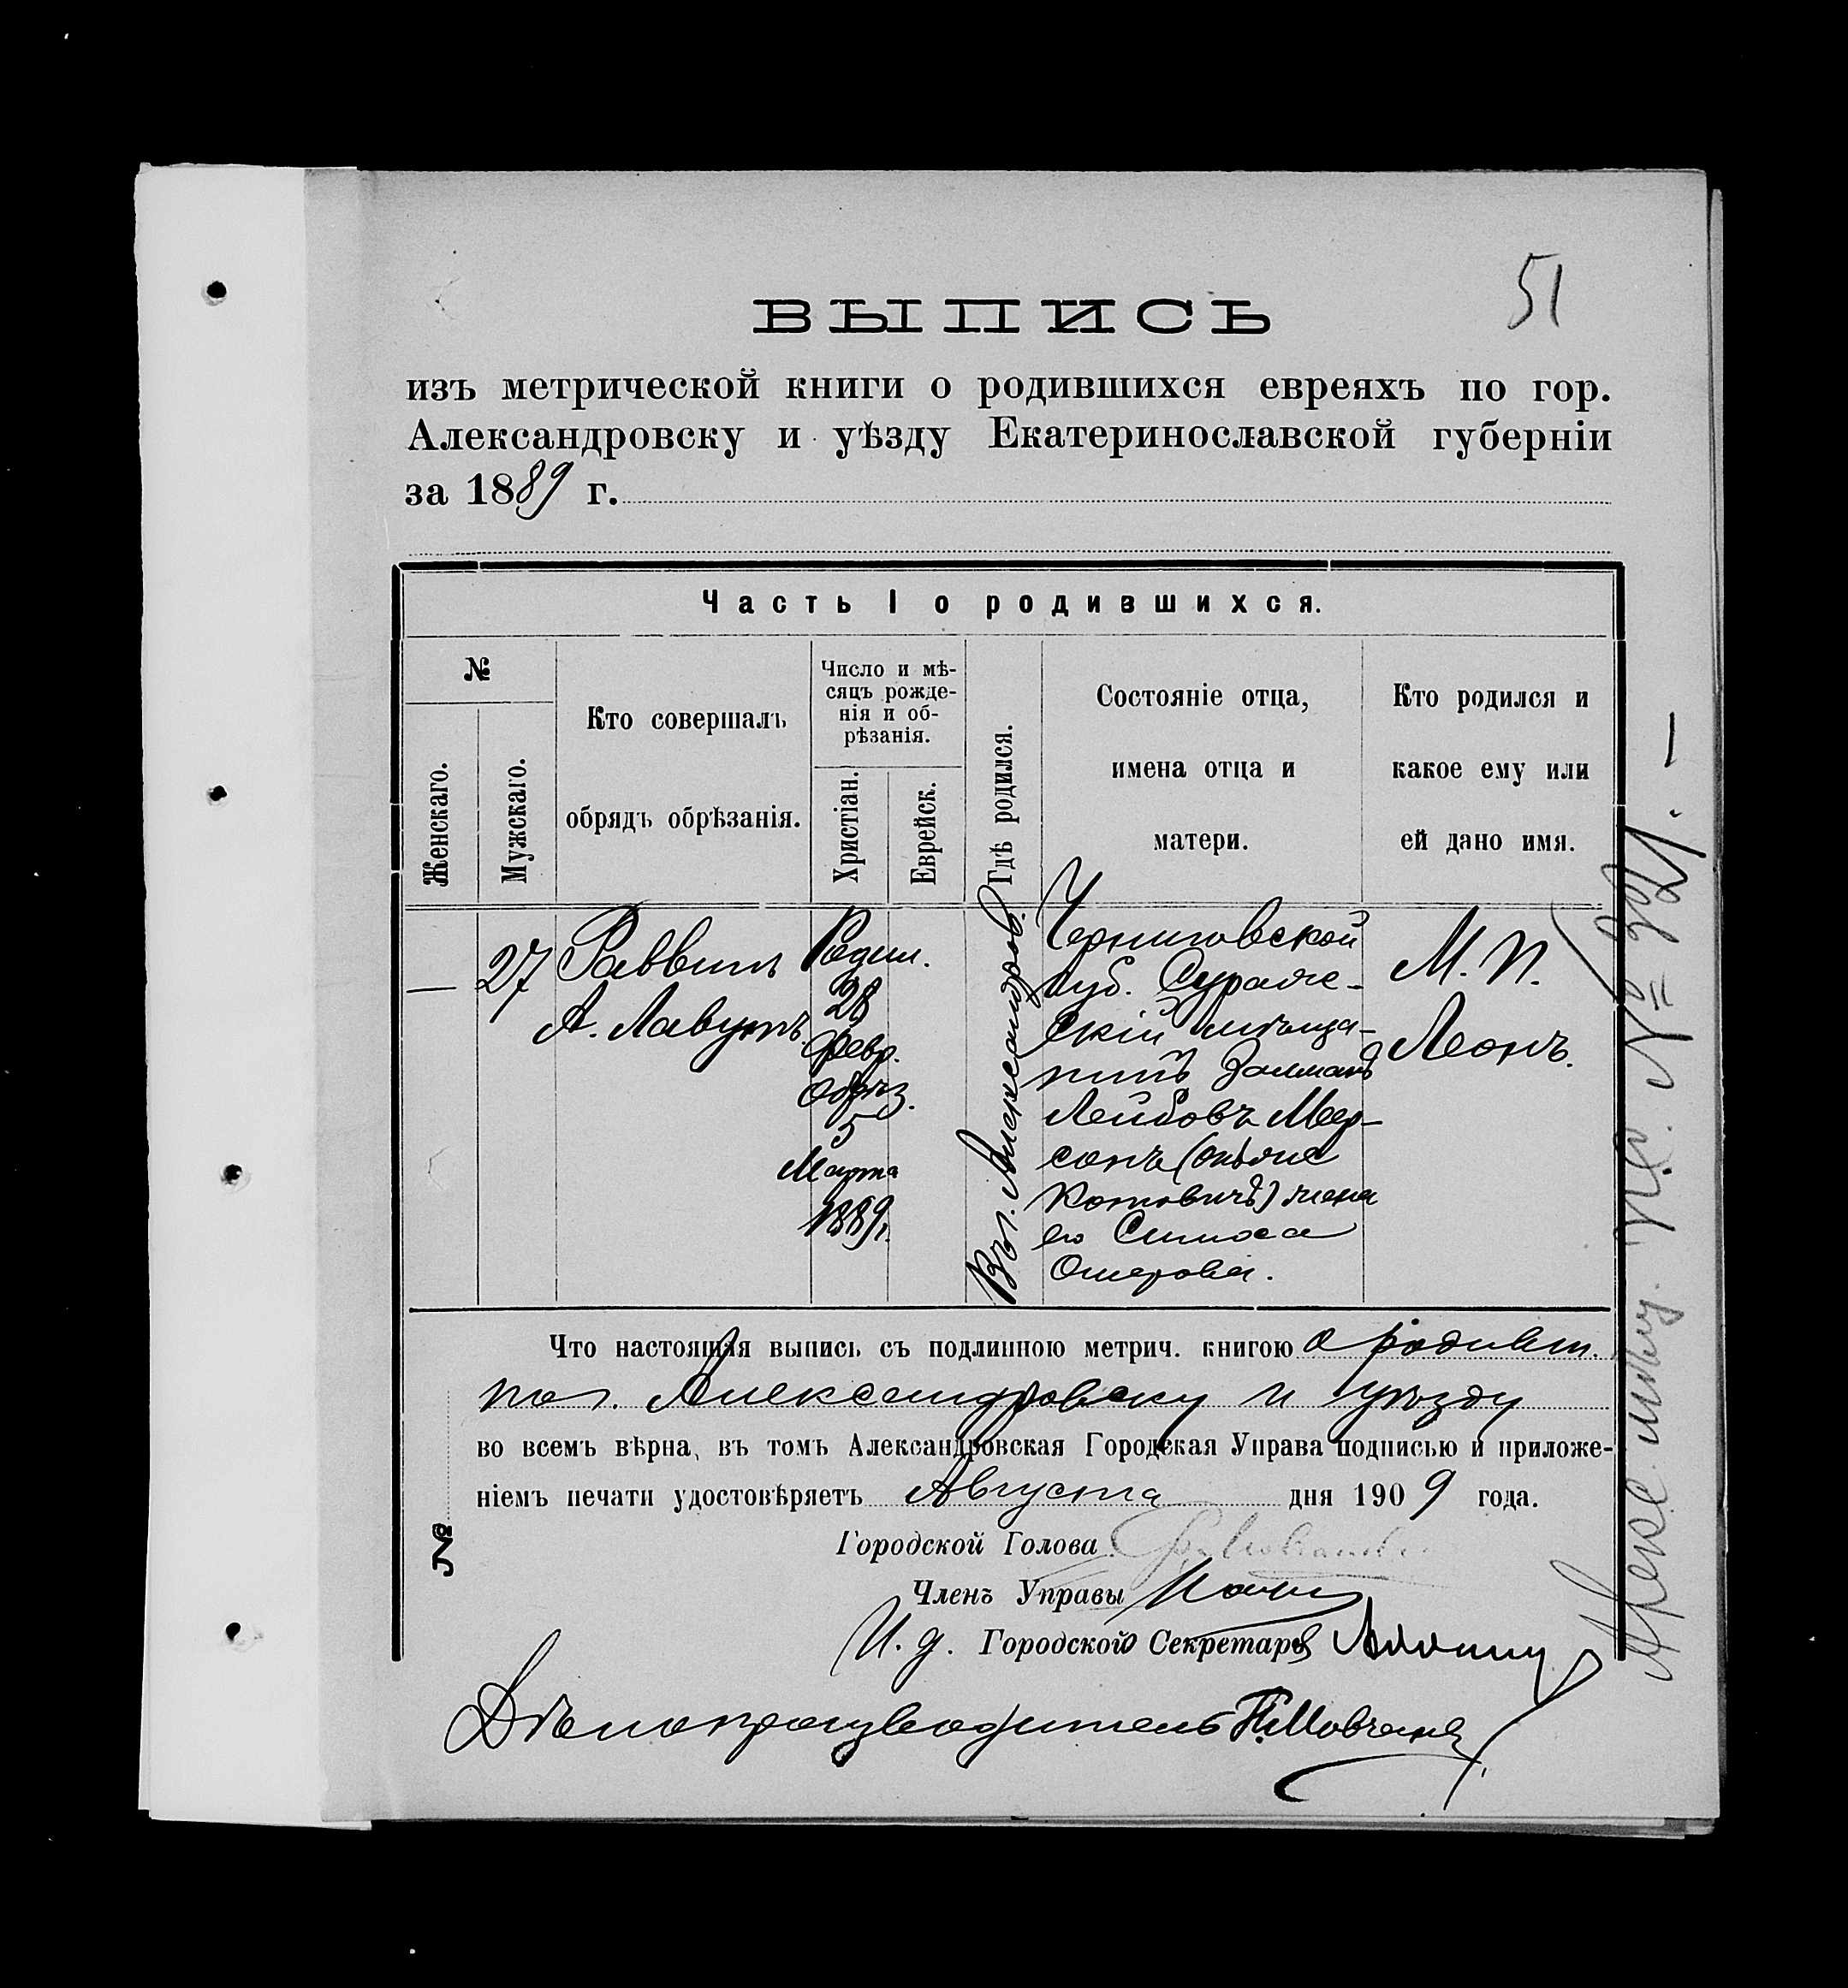 51
ВЫПИСЬ
изъ метрической книги о родившихся евреяхъ по гор.
Александровску и уѣзду Екатеринославской губерніи
за 1889 г.
Часть I о родившихся.
№
Женскаго.
Мужскаго.
Кто совершалъ
обрядъ обрѣзанія.
Число и мѣ-
сяцъ рожде-
нія и об-
рѣзанія.
Христіан.
Еврейск.
Гдѣ родился.
Состояніе отца,
имена отца и
матери.
Кто родился и
какое ему или
ей дано имя.
—
27
Раввинъ
А. Лавутъ.
Родил.
28
Февр.
Обрѣз.
5
Марта
1889г.
Въ г. Александров.
Черниговской
губ. Сураже-
скій мѣща-
нинъ Залманъ
Лейбовъ Меер-
сонъ (онъ же
Котовичъ) жена
его Симоса
Ошерова.
М. П.
Леонъ.
Что настоящая выпись съ подлинною метрич. книгою о родивш.
по г. Александровску и уѣзду
во всемъ вѣрна, въ томъ Александровская Городская Управа подписью и приложе-
ніемъ печати удостовѣряетъ Августа дня 1909 года.
№
Городской Голова
Членъ Управы
И. д. Городской Секретарь
Дѣлопроизводитель Мовчанъ
№ 321. —